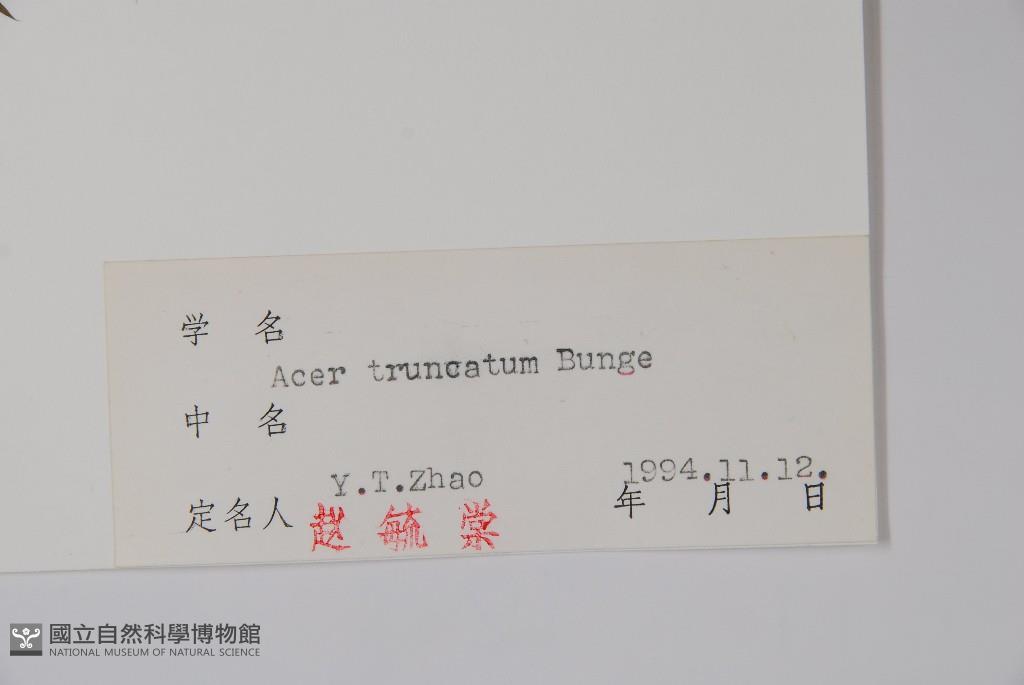 学 名
Acer truncatum Bunge
中 名
Y.T.Zhao 1994.11.12.
定名人 赵 毓 棠 年 月 日
國立自然科學博物館
NATIONAL MUSEUM OF NATURAL SCIENCE